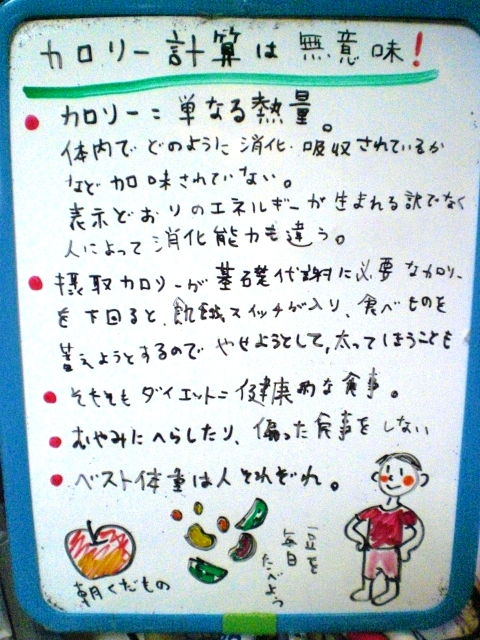 カロリー計算は 無意味!
カロリー = 単なる熱量。
体内で どのように 消化・吸収されているか
など 加味されていない。
表示どおりのエネルギーが 生まれる訳でなく
人によって 消化能力も違う。
摂取カロリーが 基礎代謝に必要なカロリー
を 下回ると、飢餓スイッチが入り、食べものを
蓄えようとするので やせようとして、太ってしまうことも
そもそも ダイエット=健康的な食事。
むやみにへらしたり、偏った食事を しない
ベスト体重は人それぞれ。
豆を
毎日
たべよう
朝くだもの